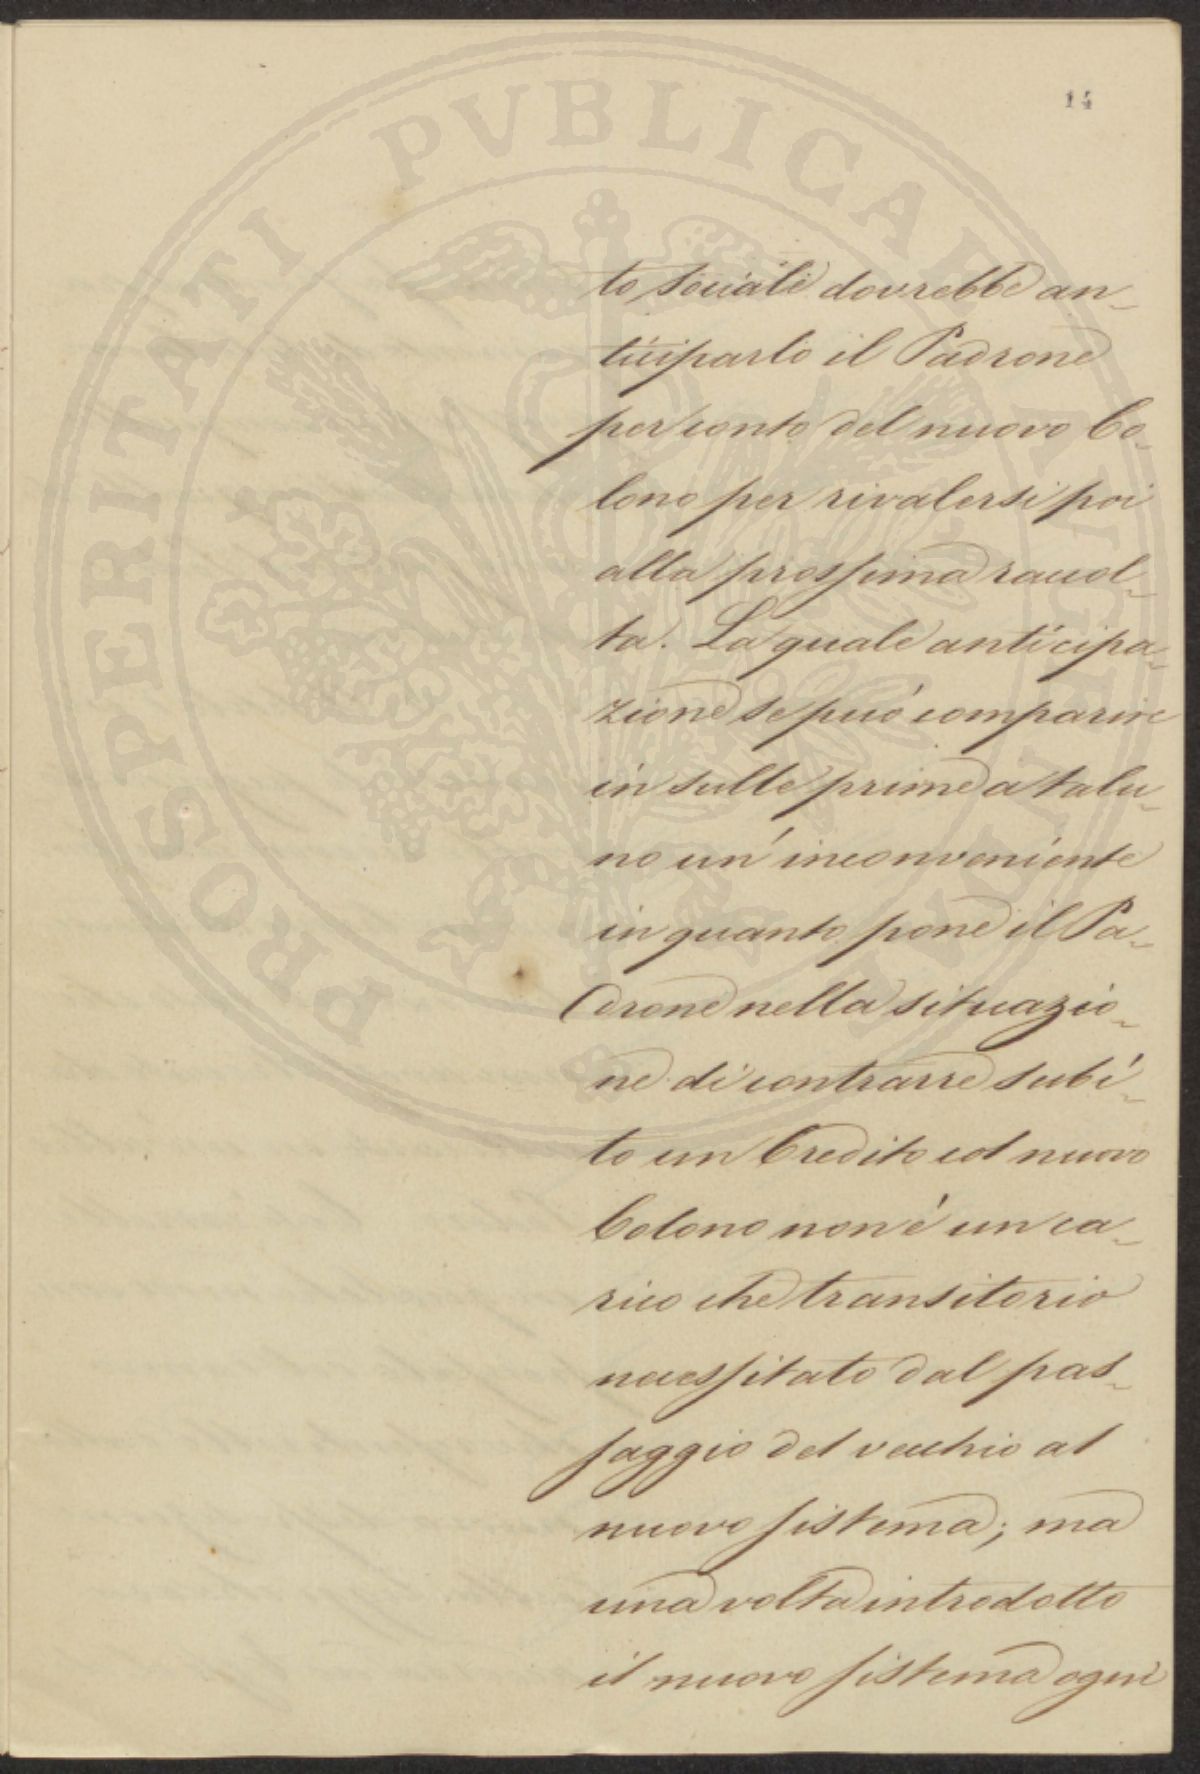 14
PROSPERITATI PVBLICAE AVGENDAE
to sociale dovrebbe an-
ticiparlo il Padrone
per conto del nuovo Co-
lono per rivalersi poi
alla prossima racol-
ta. La quale anticipa-
zione se può comparire
in sulle prime a talu-
no un' inconveniente
in quanto pone il Pa-
drone nella situazio-
ne di contrarre subi-
to un Credito col nuovo
Colono non è un ca-
rico che transitorio
necessitato dal pas-
saggio del vecchio al
nuovo sistema; ma
una volta introdotto
il nuovo sistema ogni